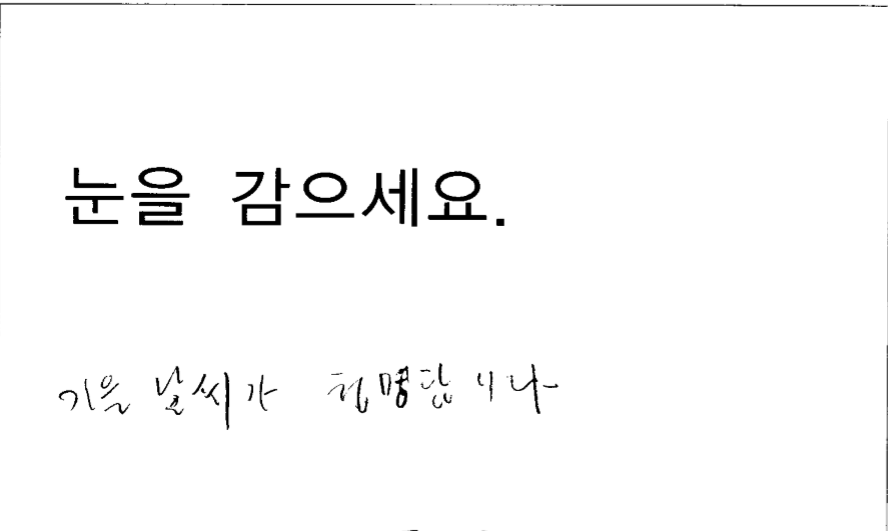 눈을 감으세요.
기을 날씨가 청명합니다